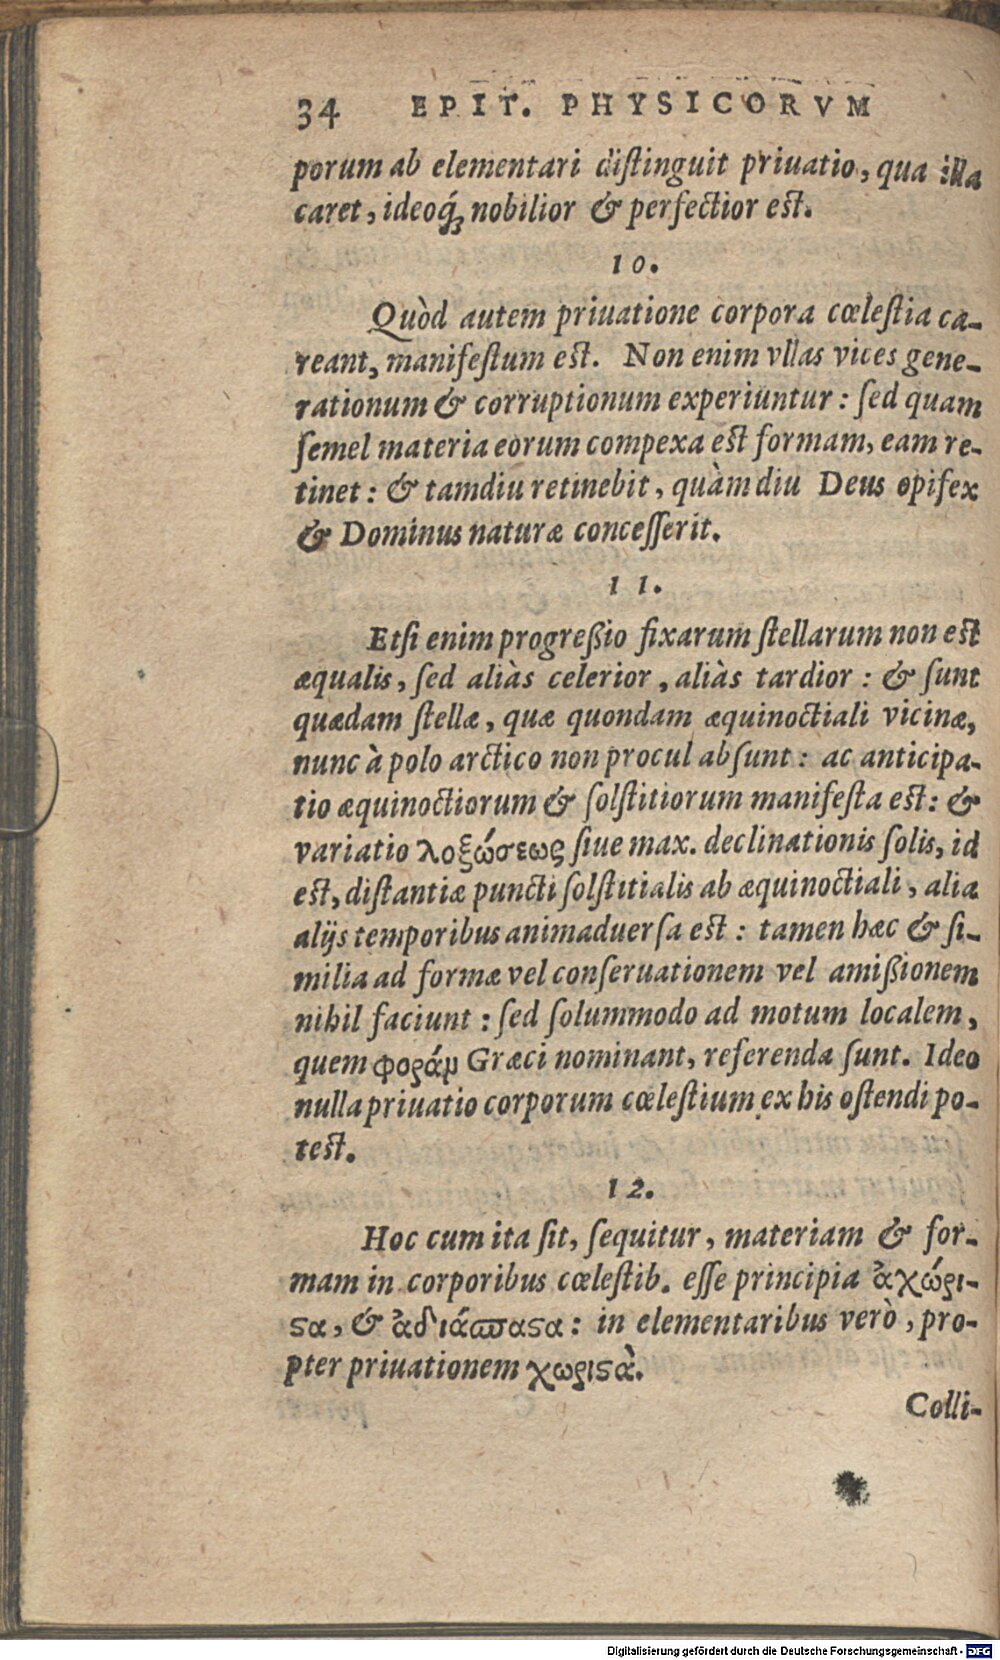 34 EPIT. PHYSICORVM
porum ab elementari distinguit priuatio, qua illa
caret, ideoq́; nobilior & perfectior est.
10.
Quòd autem priuatione corpora cœlestia ca-
reant, manifestum est. Non enim vllas vices gene-
rationum & corruptionum experiuntur: sed quam
semel materia eorum compexa est formam, eam re-
tinet: & tamdiu retinebit, quàm diu Deus opifex
& Dominus naturæ concesserit.
11.
Etsi enim progreßio fixarum stellarum non est
æqualis, sed aliàs celerior, aliàs tardior: & sunt
quædam stellæ, quæ quondam æquinoctiali vicinæ,
nunc à polo arctico non procul absunt: ac anticipa-
tio æquinoctiorum & solstitiorum manifesta est: &
variatio λοξώσεως siue max. declinationis solis, id
est, distantiæ puncti solstitialis ab æquinoctiali, alia
alijs temporibus animaduersa est: tamen hæc & si-
milia ad formæ vel conseruationem vel amißionem
nihil faciunt: sed solummodo ad motum localem,
quem φοράν Græci nominant, referenda sunt. Ideo
nulla priuatio corporum cœlestium ex his ostendi po-
test.
12.
Hoc cum ita sit, sequitur, materiam & for-
mam in corporibus cœlestib. esse principia ἀχώρι-
ϛα, & ἀδιάϖαϛα: in elementaribus verò, pro-
pter priuationem χωριϛὰ.
Colli-
Digitalisierung gefördert durch die Deutsche Forschungsgemeinschaft - DFG